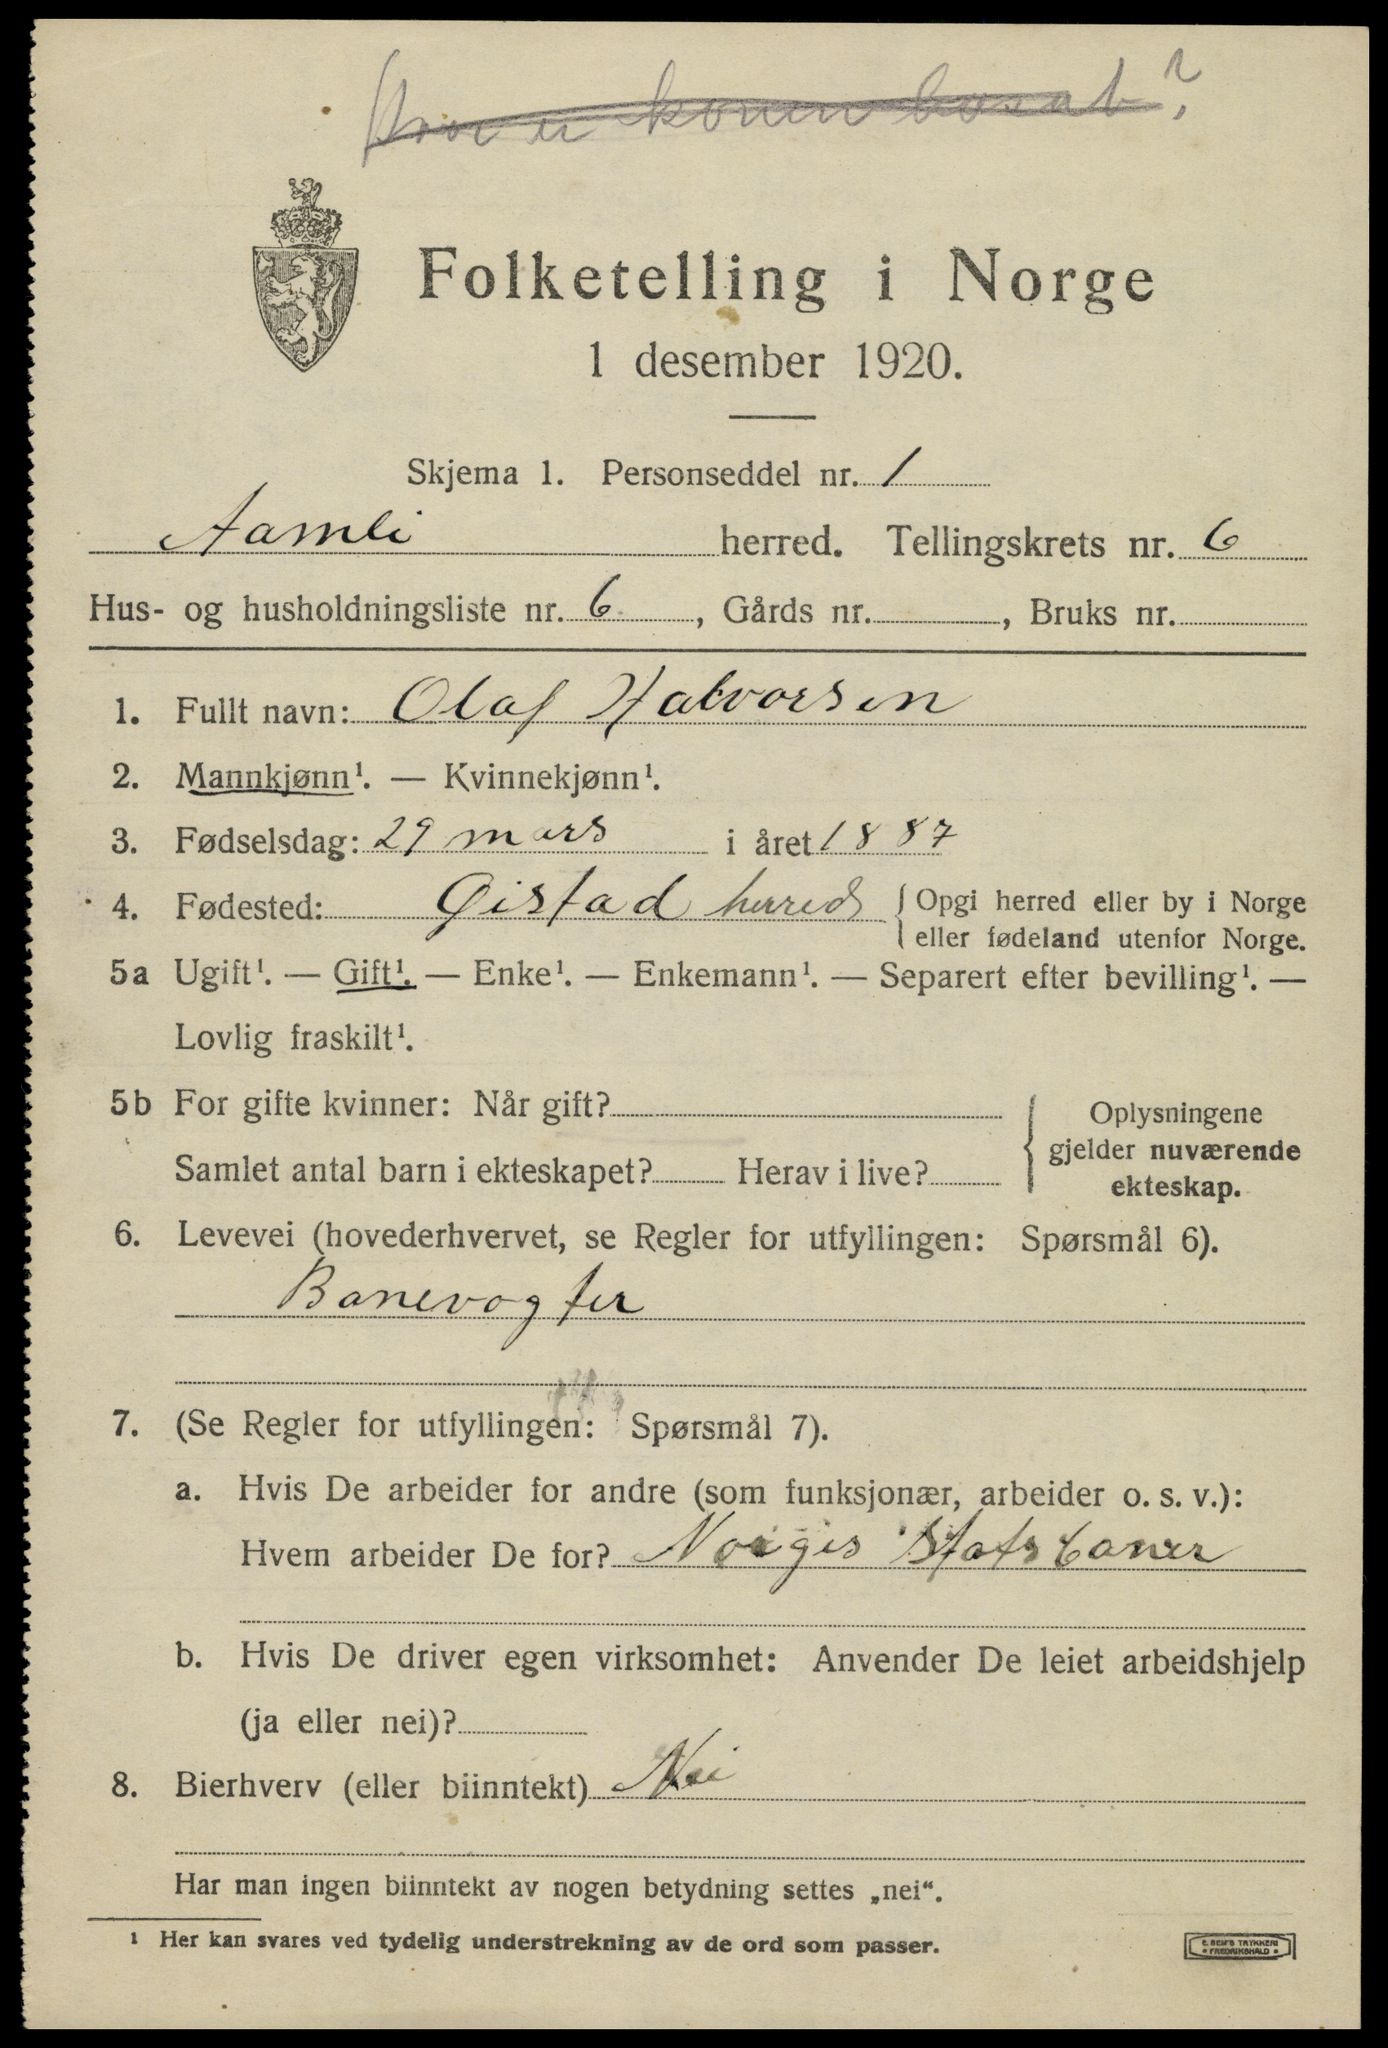 Hvor er konen bosat?
Folketelling i Norge
1 desember 1920.
Skjema 1. Personseddel nr. 1
Aamli herred. Tellingskrets nr. 6
Hus- og husholdningsliste nr. 6, Gårds nr. , Bruks nr.
1. Fullt navn: Olaf Halvorsen
2. Mannkjønn¹. — Kvinnekjønn¹.
3. Fødselsdag: 29 mars i året 1887
4. Fødested: Øistad herred { Opgi herred eller by i Norge
eller fødeland utenfor Norge.
5a Ugift¹. — Gift¹. — Enke¹. — Enkemann¹. — Separert efter bevilling¹. —
Lovlig fraskilt¹.
5b For gifte kvinner: Når gift?
Samlet antal barn i ekteskapet? Herav i live?
Oplysningene
gjelder nuværende
ekteskap.
6. Levevei (hovederhvervet, se Regler for utfyllingen: Spørsmål 6).
Banevogter
7. (Se Regler for utfyllingen: Spørsmål 7).
a. Hvis De arbeider for andre (som funksjonær, arbeider o. s. v.):
Hvem arbeider De for? Norges Statsbaner
b. Hvis De driver egen virksomhet: Anvender De leiet arbeidshjelp
(ja eller nei)?
8. Bierhverv (eller biinntekt) Nei
Har man ingen biinntekt av nogen betydning settes „nei“.
¹ Her kan svares ved tydelig understrekning av de ord som passer.
E. SEM'S TRYKKERI
• FREDRIKSHALD •